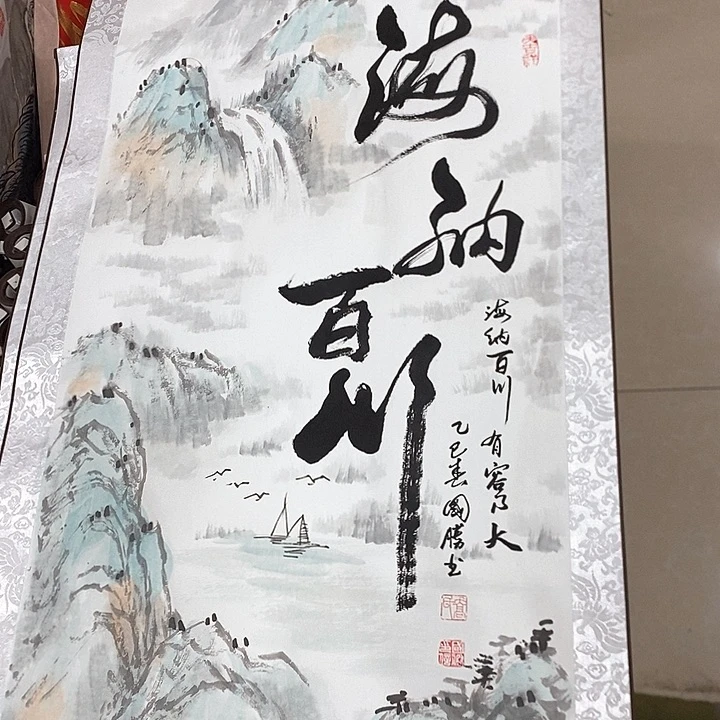 海纳百川
海纳百川 有容乃大
乙巳春国胜书